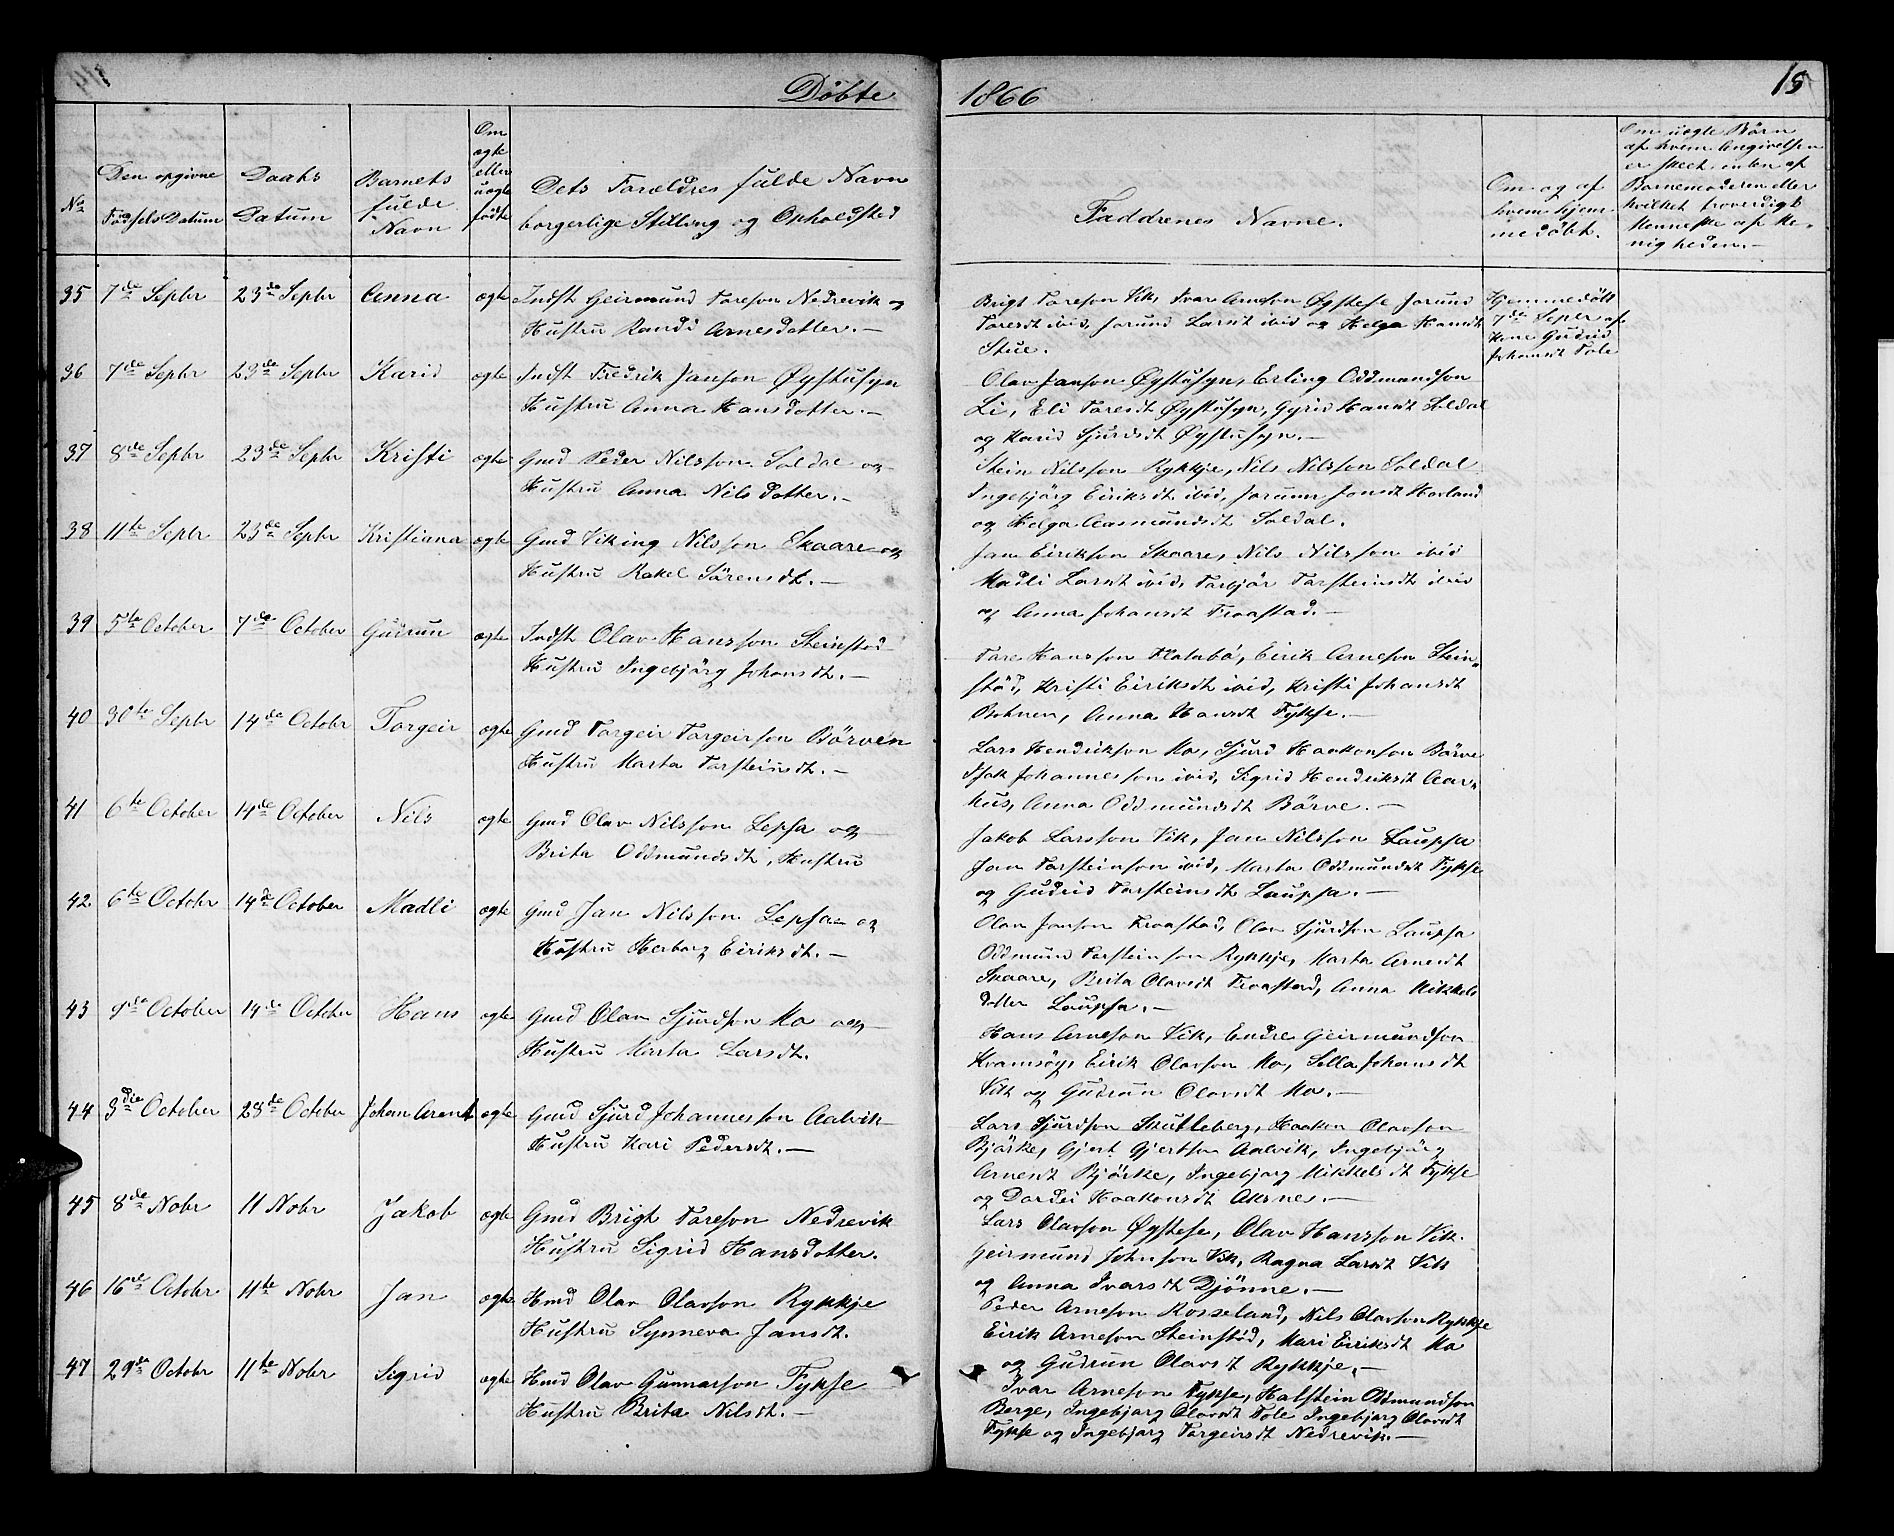 Döbte 1866
15
No
Den opgivne Fødsels Datum
Daabs Datum
Barnets fulde Navn
Om ægte eller uægte født
Dets Forældres fulde Navn borgerlige Stilling og Opholdsted
Faddrenes Navne.
Om og af hvem hjemmedöbt.
Om uægte Börn af hvem Angivelsen er skeet, enten af Barnemoderen eller hvilket troverdigt Menneske af Menigheden.-
35 7de Septbr 23de Septbr Anna ægte Indst Geirmund Toreson Nedrevik og
Hustru Randi Arnesdotter.-
Brigt Toreson Vik, Ivar Arneson Øystese Jorund
Toresdt ibid, Jorund Larsdt ibid og Helga Hansdt
Stue.
Hjemmedöbt
7de Septbr af
Kone Gudrid
Johansdt Tole
36 7de Septbr 23de Septbr Karid ægte Indst Fredrik Janson Øystusyn
Hustru Anna Hansdotter.-
Olav Janson Øystusyn, Erling Oddmundson
Li, Eli Toresdt Øystusyn, Gyrid Hansdt Soldal
og Karid Sjurdsdt Øystusyn.-
37 8de Septbr 23de Septbr Kristi ægte Gmd Peder Nilsson Soldal og
Hustru Anna Nilsdotter.-
Stein Nilsson Rykkje, Nils Nilsson Soldal
Ingebjörg Eiriksdt ibid, Jorunn Jonsdt Hovland
og Helga Aasmundsdt Soldal.
38 11te Septbr 23de Septbr Kristiana ægte Gmd Viking Nilsson Skaare og
Hustru Rakel Sörensdt.-
Jan Eirikson Skaare, Nils Nilsson ibid
Madli Larsdt ibid, Torbjör Torsteinsdt ibid
og Anna Johansdt Froastad.-
39 5te October 7de October Gudrun ægte Indst Olav Hansson Steinstöd
Hustru Ingebjörg Johansdt.-
Tore Hansson Flatabö, Eirik Arneson Stein-
stöd, Kristi Eiriksdt ibid, Kristi Johansdt
Botnen, Anna Hansdt Fykse.-
40 30te Septbr 14de Octobr Torgeir ægte Gmd Torgeir Torgeirson Börven
Hustru Marta Torsteinsdt.-
Lars Hendrikson Mo, Sjurd Haakonson Börve
Isak Johannesson ibid, Sigrid Hendriksdt Aar-
hus, Anna Oddmundsdt Börve.-
41 6te October 14de October Nils ægte Gmd Olav Nilsson Lepsa og
Brita Oddmundsdt, Hustru
Jakob Larsson Vik, Jan Nilsson Laupsa
Jon Torsteinson ibid, Marta Oddmundsdt Fykse
og Gudrid Torsteinsdt Laupsa.-
42 6te Octobr 14de October Madli ægte Gmd Jan Nilsson Lepsa og
Hustru Herborg Eiriksdt.-
Olav Jonson Froastad, Olav Sjurdson Laupsa
Oddmund Torsteinson Rykkje, Marta Arnesdt
Skaare, Brita Olavsdt Froastad, Anna Mikkels
dotter Laupsa.-
43 9de October 14de October Hans ægte Gmd Olav Sjurdson Mo og
Hustru Marta Larsdt.
Hans Arneson Vik, Endre Geirmundson
Kvamsöy, Eirik Olavson Mo, Sella Johansdt
Vik og Gudrun Olavsdt Mo.-
44 3die October 28de October Johan Arent ægte Gmd Sjurd Johannesson Aalvik
Hustru Kari Pedersdt.-
Lars Sjurdson Skutleberg, Haakon Olavson
Bjørke, Gjert Gjertson Aalvik, Ingebjörg
Arnesdt Bjørke, Ingebjorg Mikkelsdt Fykse
og Dordei Haakonsdt Aksnes.-
45 8de Nobr 11 Nobr Jakob ægte Gmd Brigt Toreson Nedrevik
Hustru Sigrid Hansdotter.
Lars Olavson Øystese, Olav Hansson Vik.
Geirmund Johnson Vik, Ragna Larsdt Vik
og Anna Ivarsdt Djönne.-
46 16de October 11te Nobr Jan ægte Hmd Olav Olavson Rykkje
Hustru Synneva Jansdt.
Peder Arneson Rosseland, Nils Olavson Rykkje
Eirik Arneson Steinstöd, Mari Eiriksdt Mo
og Gudrun Olavsdt Rykkje.-
47 29de Octobr 11te Nobr Sigrid ægte Hmd Olav Gunnarson Fykse
Hustru Brita Nilsdt.-
Ivar Arneson Fykse, Halstein Oddmundson
Berge, Ingebjorg Olavsdt Tole Ingebjorg Olavsdt
Fykse og Ingebjorg Torgeirsdt Nedrevik.-